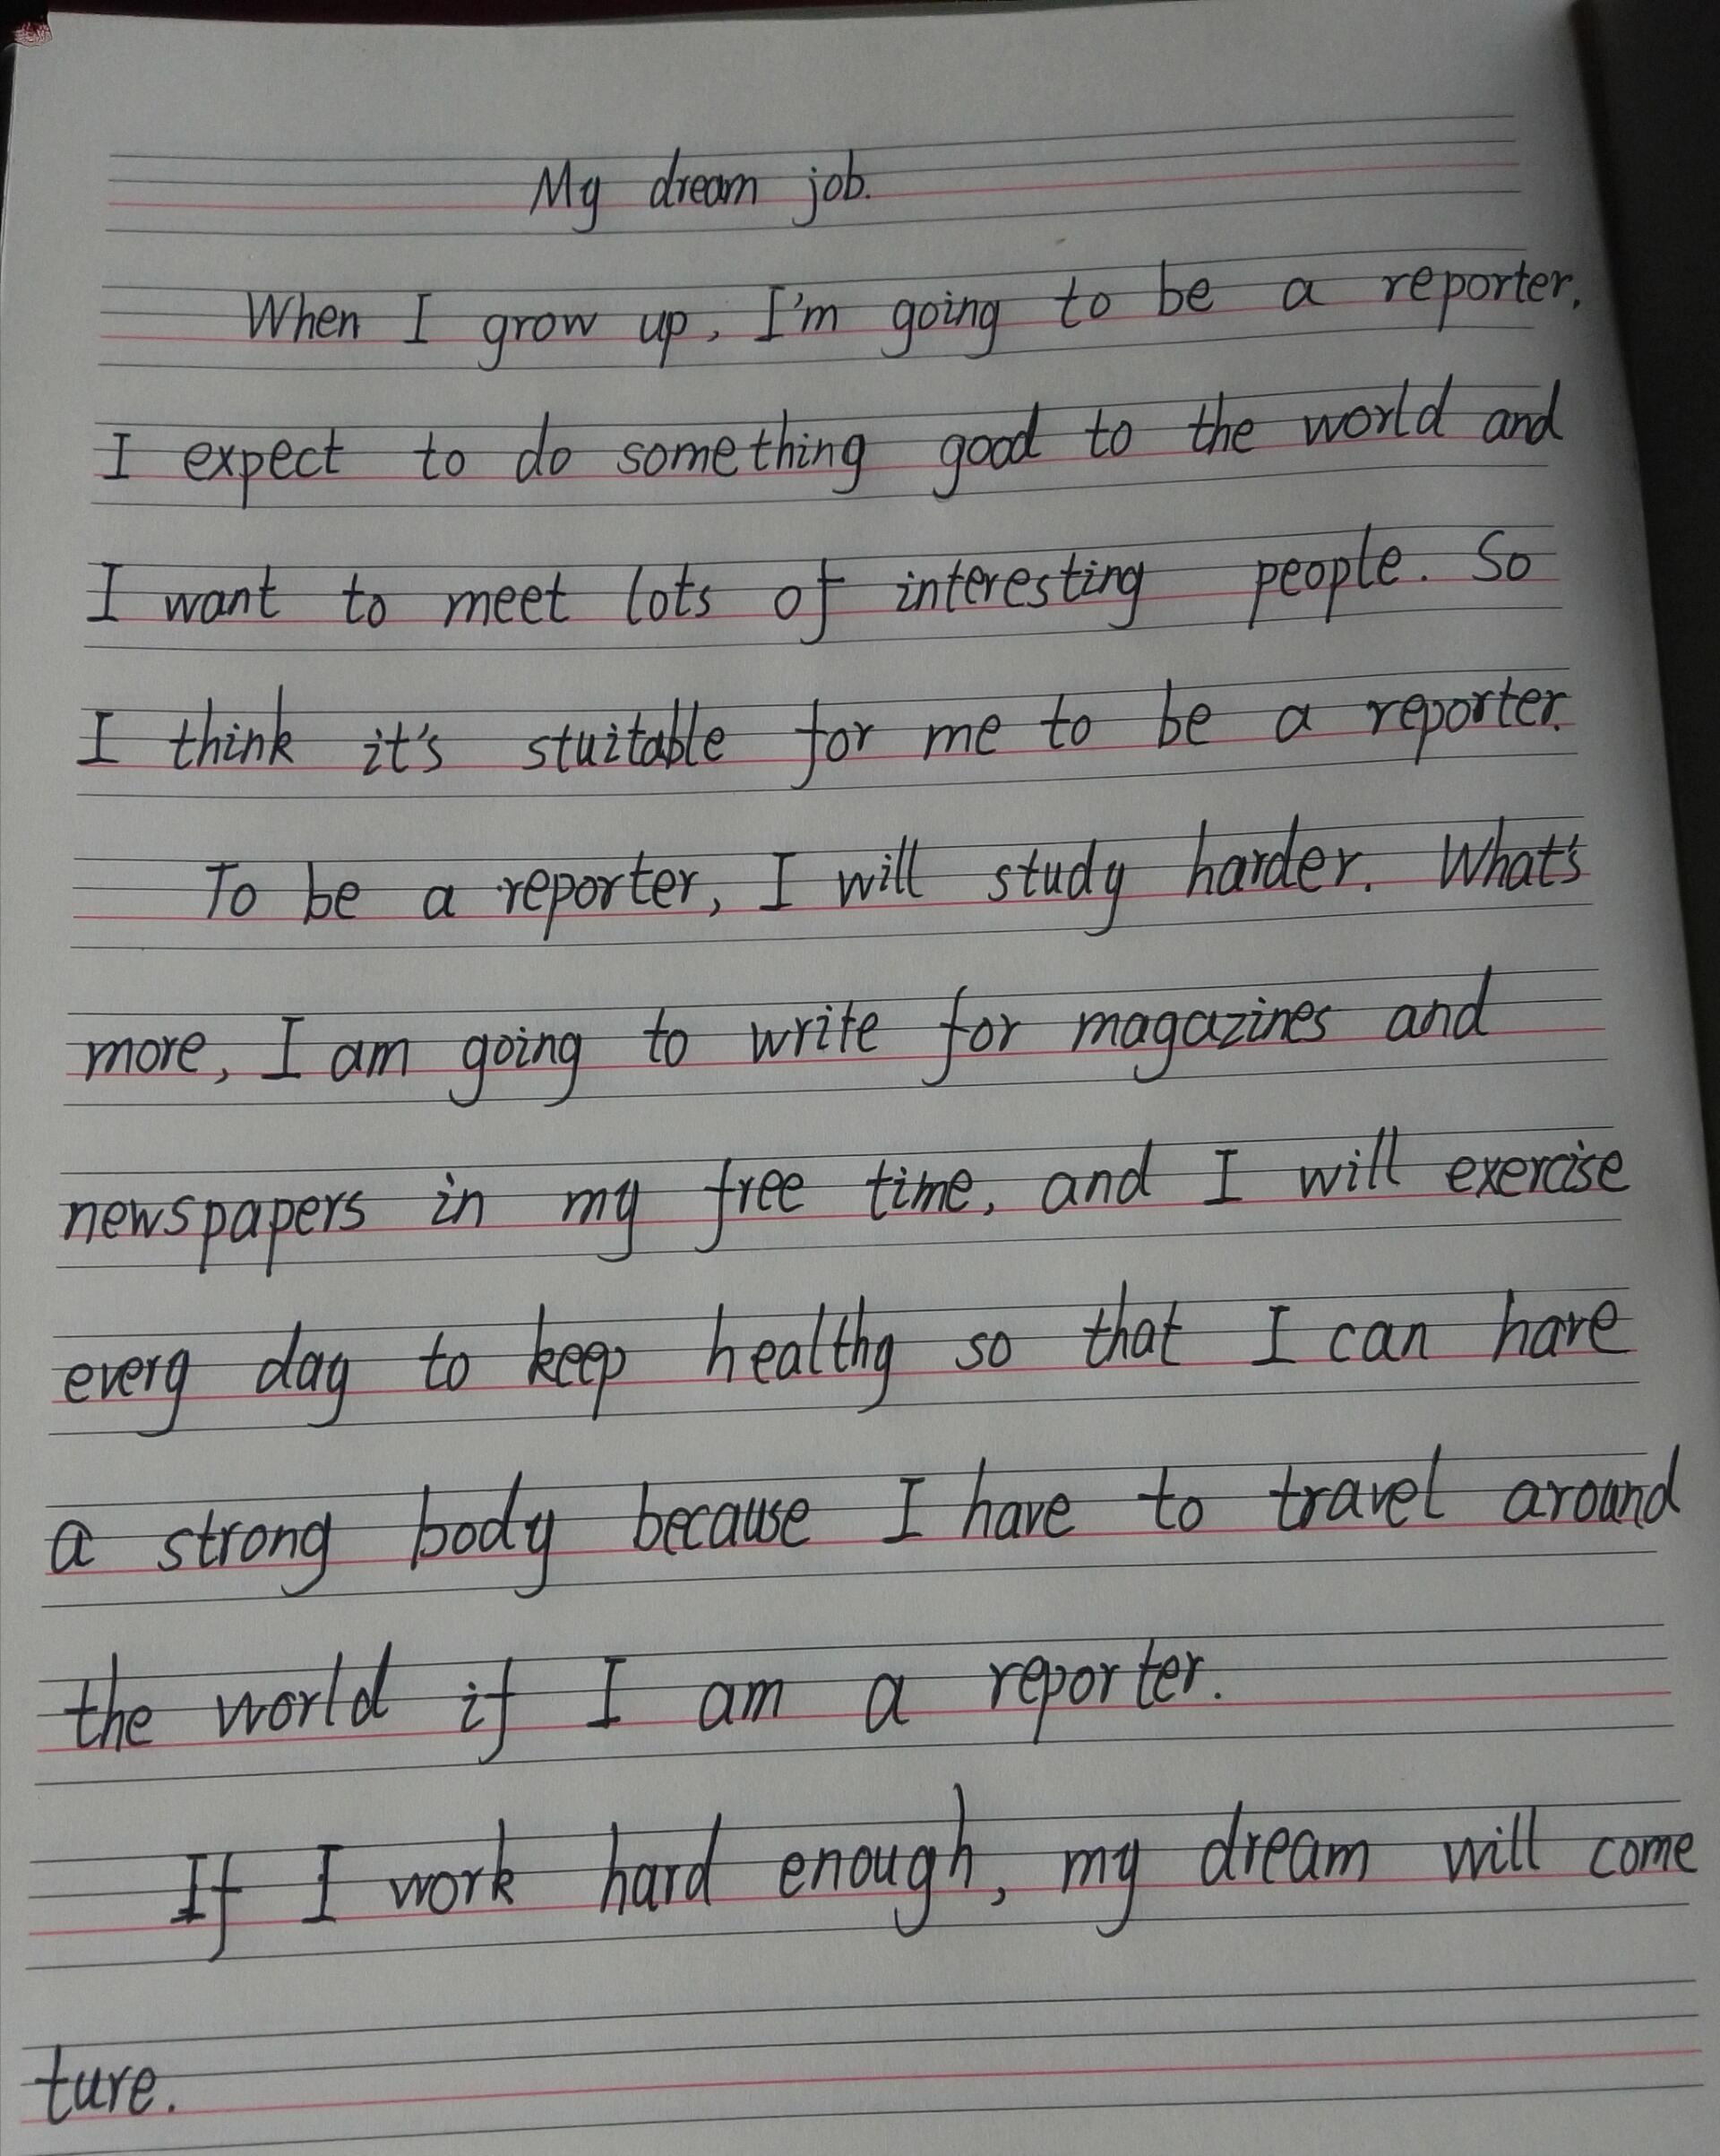 My dream job.
When I grow up, I'm going to be a reporter.
I expect to do something good to the world and
I want to meet lots of interesting people. So
I think it's stuitable for me to be a reporter.
To be a reporter, I will study harder. What's
more, I am going to write for magazines and
newspapers in my free time, and I will exercise
every day to keep healthy so that I can have
a strong body because I have to travel around
the world if I am a reporter.
If I work hard enough, my dream will come
ture.